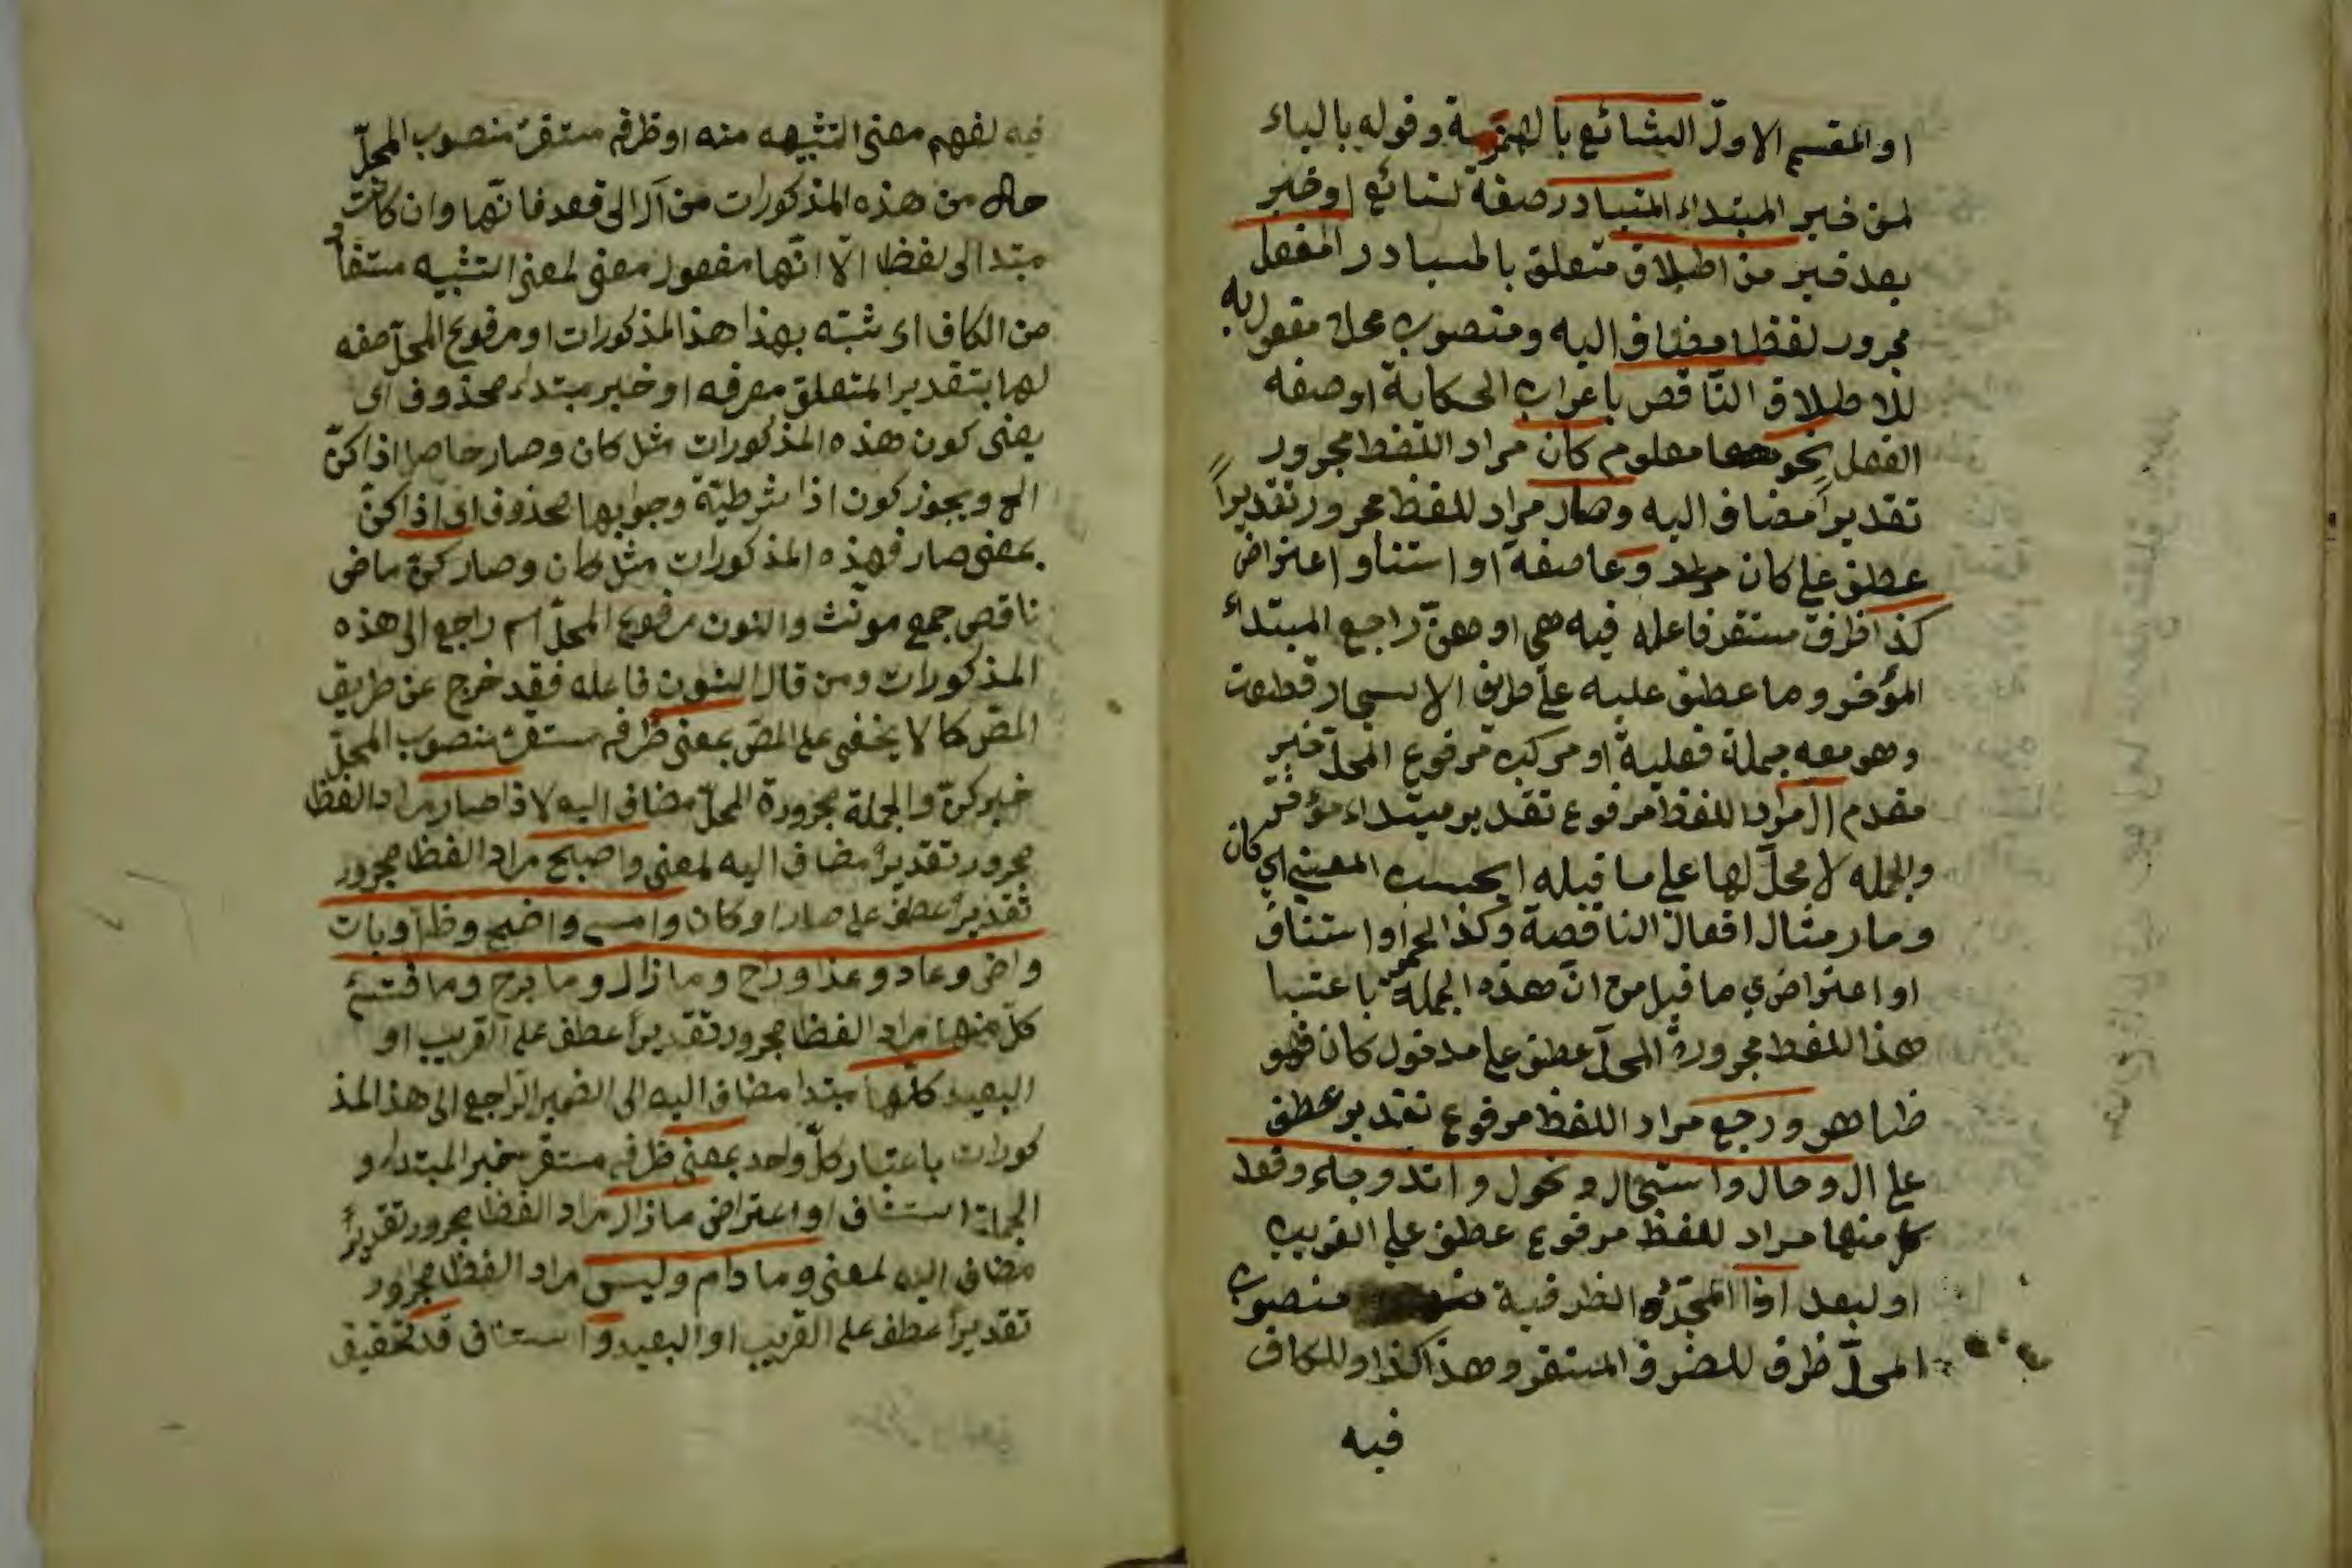 او المقسم الاول الشائع بالهمزة وقوله بالياء
لمن خبر المبتداء المتبادر صفة لشائع او خبر
بعد خبر من اطلاق متعلق بالمتبادر الفعل
مجرور لفظا مضاف اليه ومنصوب محلا مفعول به
للاطلاق الناقص باعراب الحكاية او صفة
الفعل نحو معلوم كان مراد اللفظ مجرور
تقديراً مضاف اليه وصار مراد للفظ مجرور تقديراً
عطف على كان وعا صفة او استنأ او اعتراض
كذا ظرف مستقر فاعله فيه هي او هن راجع المبتداء
المؤخر وما عطف عليه على طريق
وهو معه جملة فعلية او مركب مرفوع المحل خبر
مقدم ال مراد اللفظ مرفوع تقدير مبتداء مؤخر
والجمله لا محل لها على ما قبله بحسب المعنى اي كان
وصار مثال افعال الناقصة وكذا او استناف
او اعتراض ما قبل من ان هذه الجملة باعتبا
هذا اللفظ مجرورة المحل عطف على مدخول كان فهو
ظاهر ورجع مراد اللفظ مرفوع تقدير عطف
على ال وحال واستحال وتحول وارتد وجاء وقعد
كل منها مراد للفظ مرفوع عطف على القريب
او لبعد اذا الظرفية منصوب
المحل ظرف للظرف المستقر وهذا كذا وللكاف
فيه
فيه لفهم معنى التشبيه منه او ظرف مستقر منصوب المحل
حال من هذه المذكورات من آل الى قعد فانها وان كانت
مبتدا الى لفظا الا انها مفعول معنى لمعنى التشبيه مستفاد
من الكاف اى شبه بهذا هذا المذكورات او مرفوع المحل صفه
لها بتقدير المتعلق معرفه او خبر مبتداء محذوف اى
يعنى كون هذه المذكورات مثل كان وصار حاصل اذا كن
الخ ويجوز كون اذا شرطية وجوابها محذوف اى اذا كن
بمعنى صار فهذه المذكورات مثل كان وصار كن ماضى
ناقص جمع مونث والنون مرفوع المحل اسم راجع الى هذه
المذكورات ومن قال النون فاعله فقد خرج عن طريق
المص كما لا يخفى على المص بمعنى ظرف مستقر منصوب المحل
خبر كن والجملة مجرورة المحل مضاف اليه لاذا صار مراد الفظ
مجرور تقديرا مضاف اليه لمعنى واصبح مراد الفظ مجرور
تقديرا عطف على صار او كان وامسى واضحى وظل وبات
واض وعاد وغدا وراح وما زال وما برح وما فتئ
كل منها مراد الفظ مجرور تقديرا عطف على القريب او
البعيد كلها مبتدا مضاف اليه الى الضمير الراجع الى هذ المذ
كورات باعتبار كل واحد بمعنى ظرف مستقر خبر المبتداء و
الجملة استئناف او اعتراض ما زال مراد الفظ مجرور تقديرا
مضاف اليه لمعنى وما دام وليس مراد الفظ مجرور
تقديرا عطف على القريب او البعيد و استئناف قد تحقيق